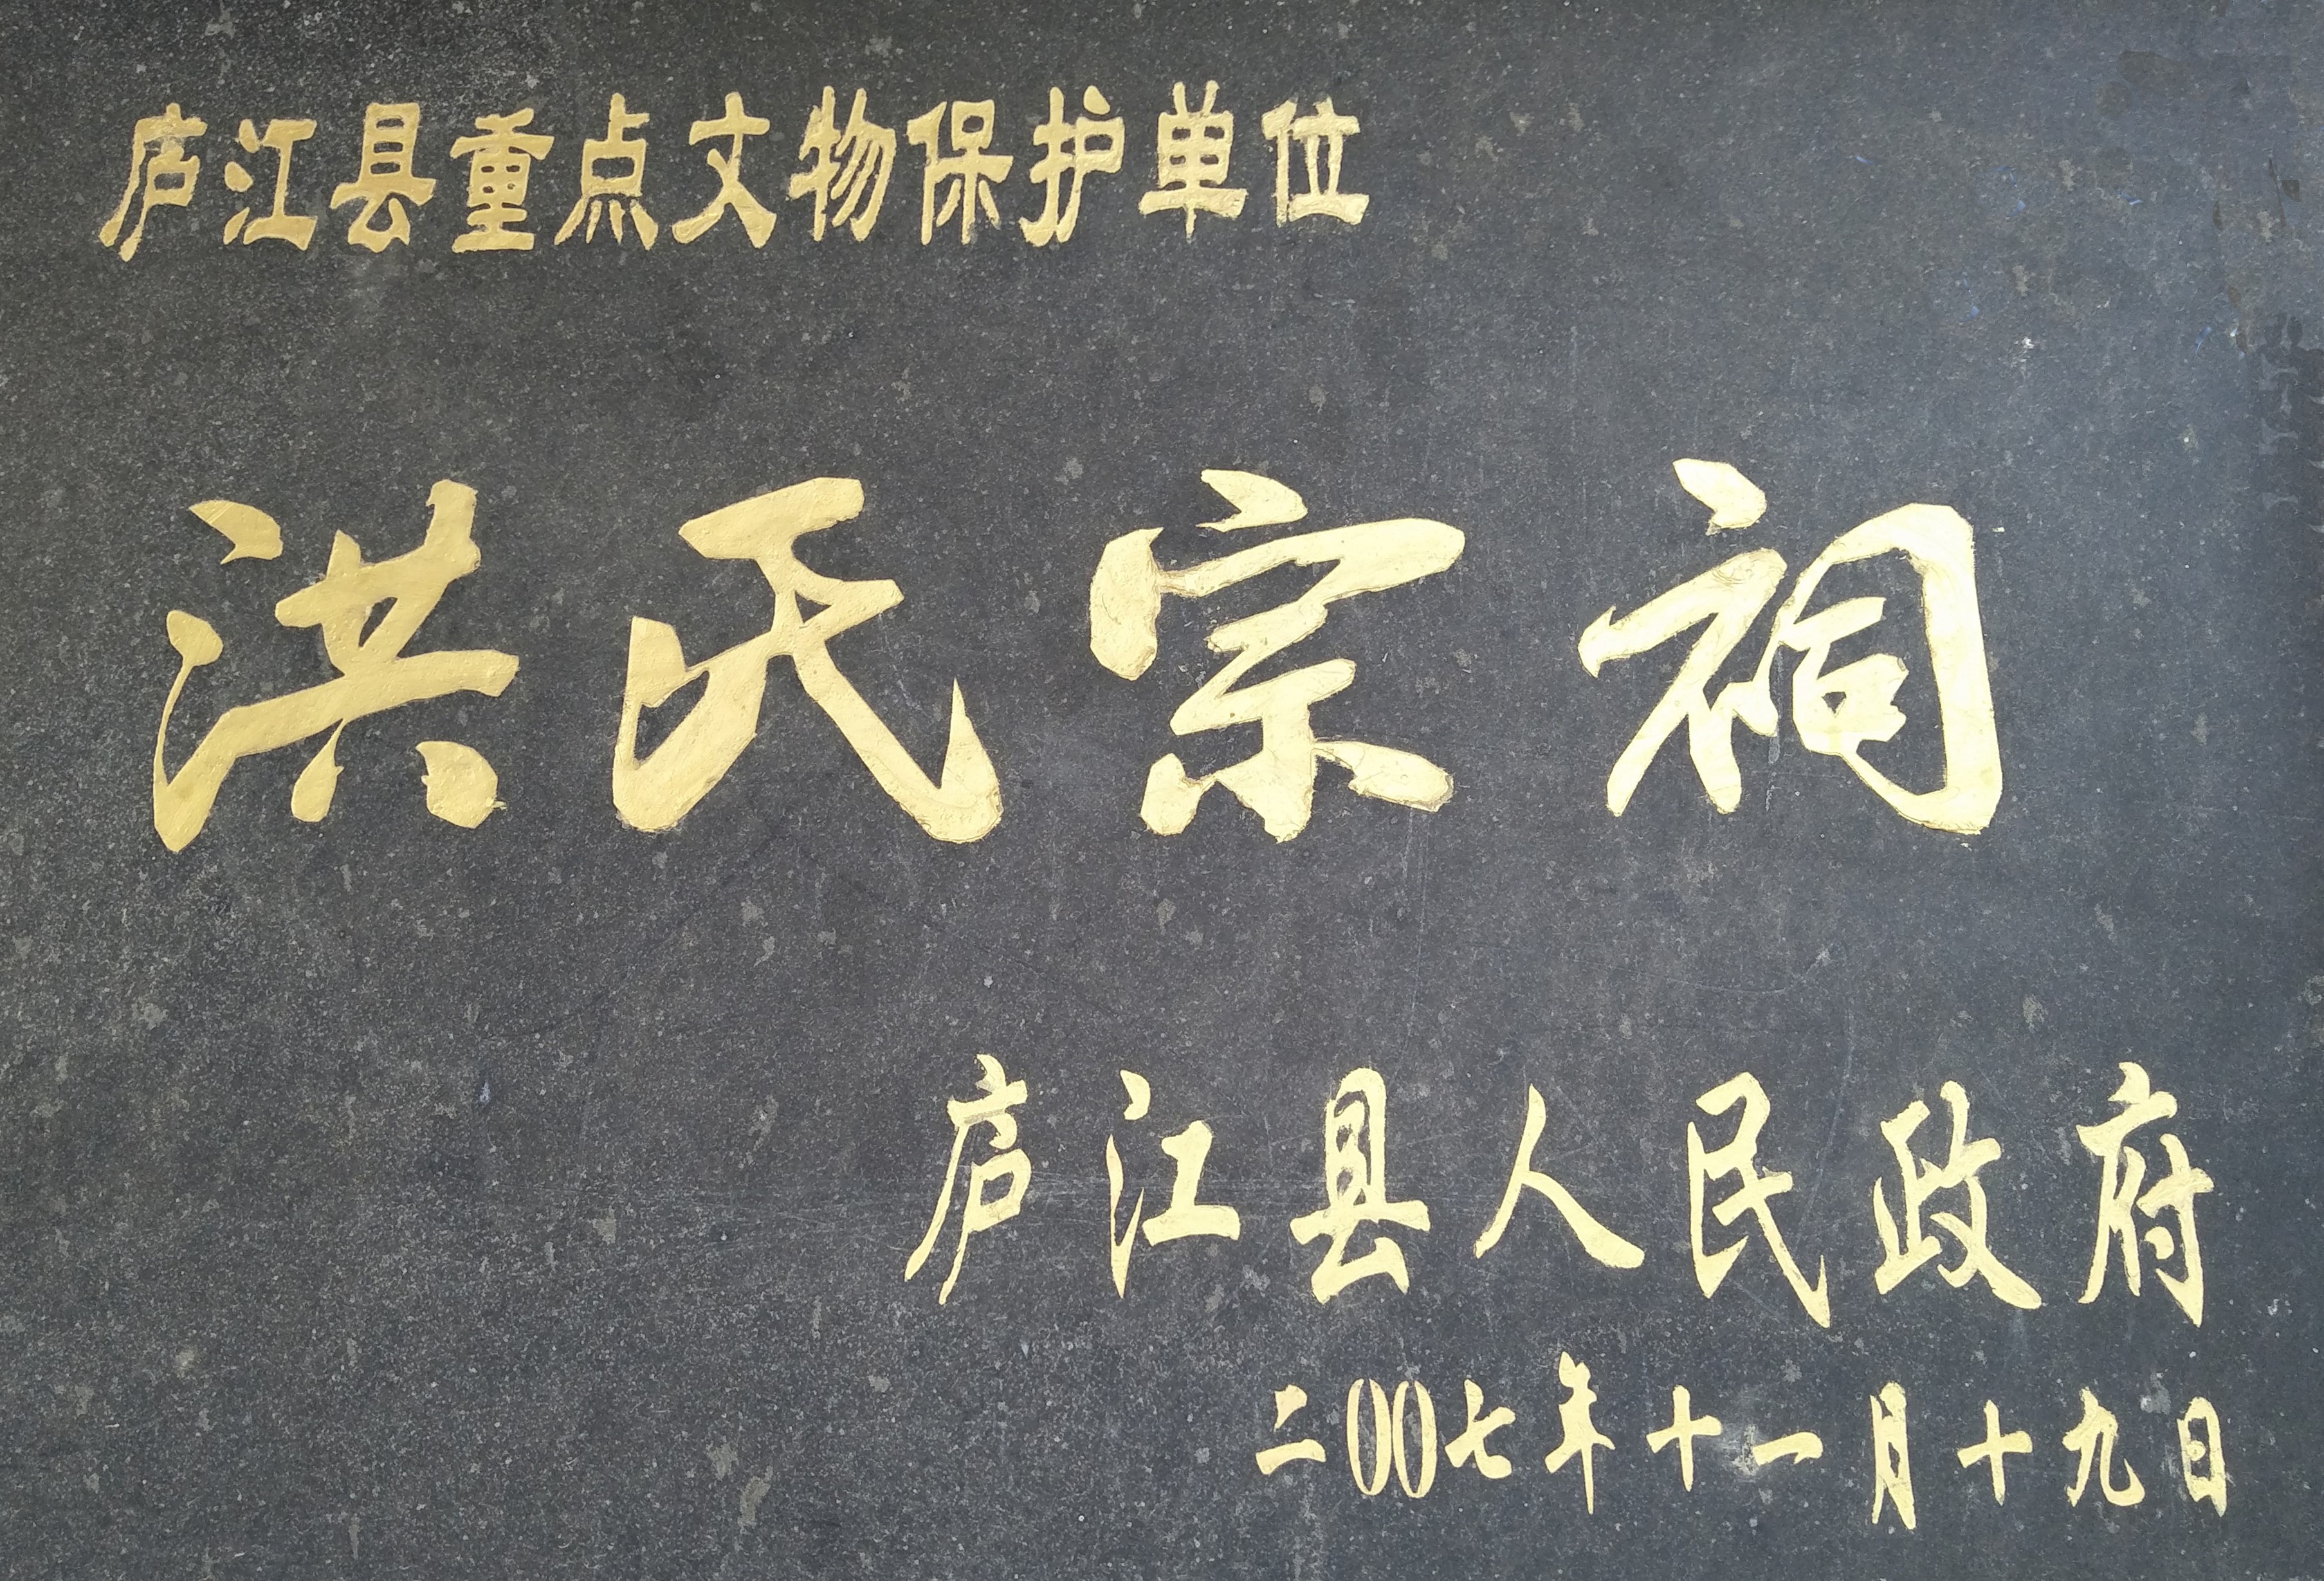 庐江县重点文物保护单位
洪氏宗祠
庐江县人民政府
二00七年十一月十九日